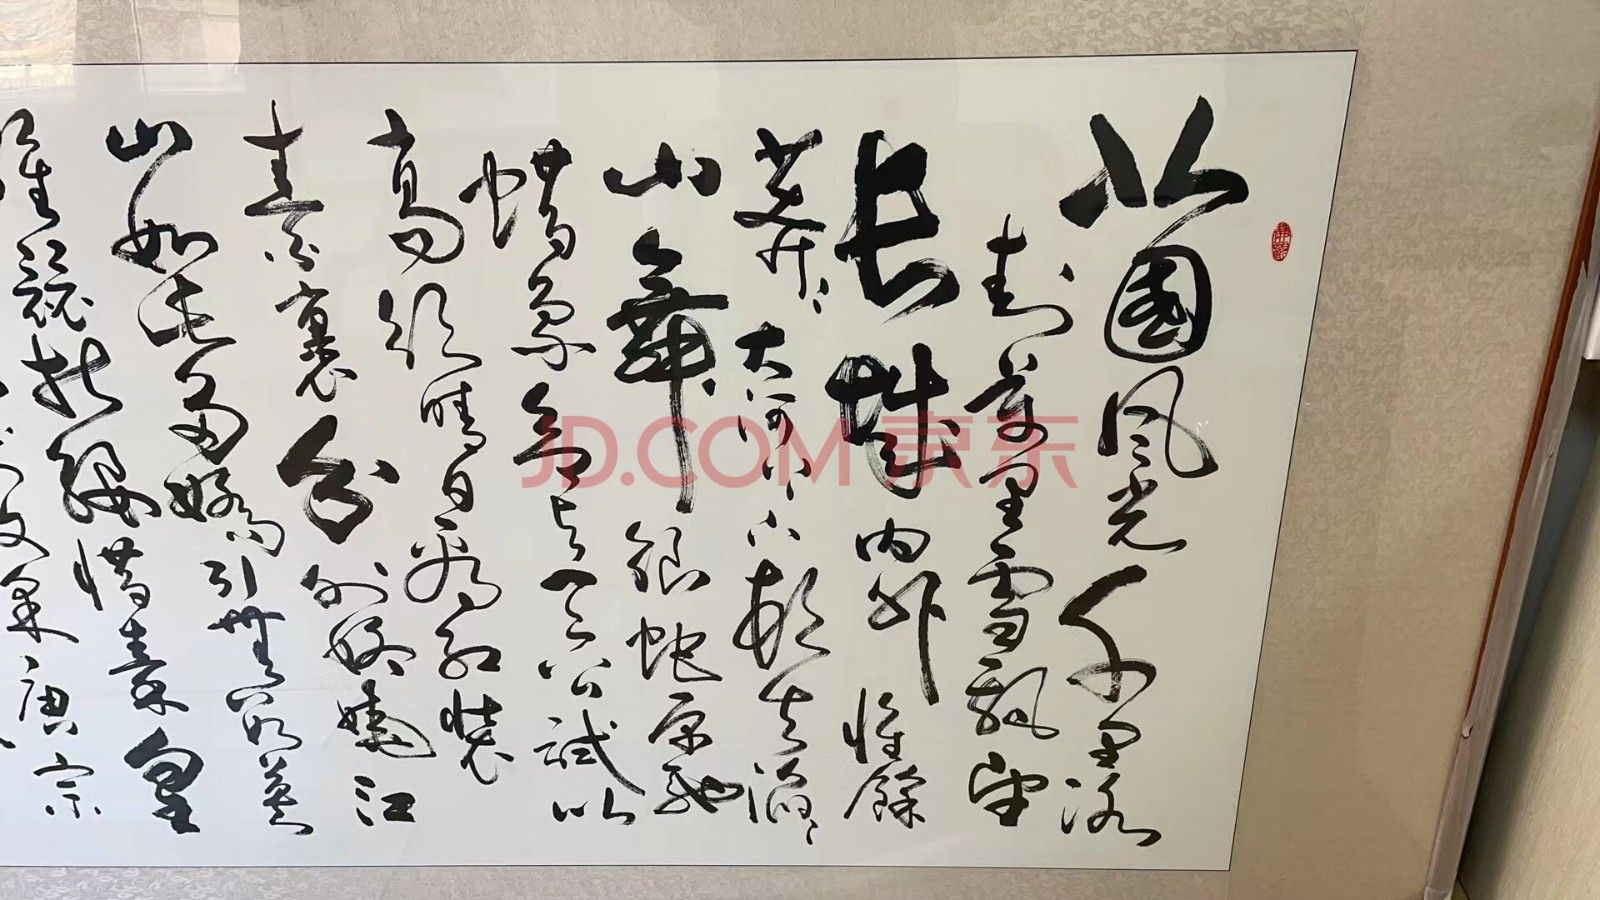 北國风光千里冰
封萬里雪飄望
长城内外惟餘
莽莽大河上下頓失滔滔
山舞銀蛇原馳
蠟象欲與天公試比
高須晴日看紅裝
素裹分外妖嬈江
山如此多嬌引無數英
雄競折腰惜秦皇
文采唐宗
JD.COM 京东